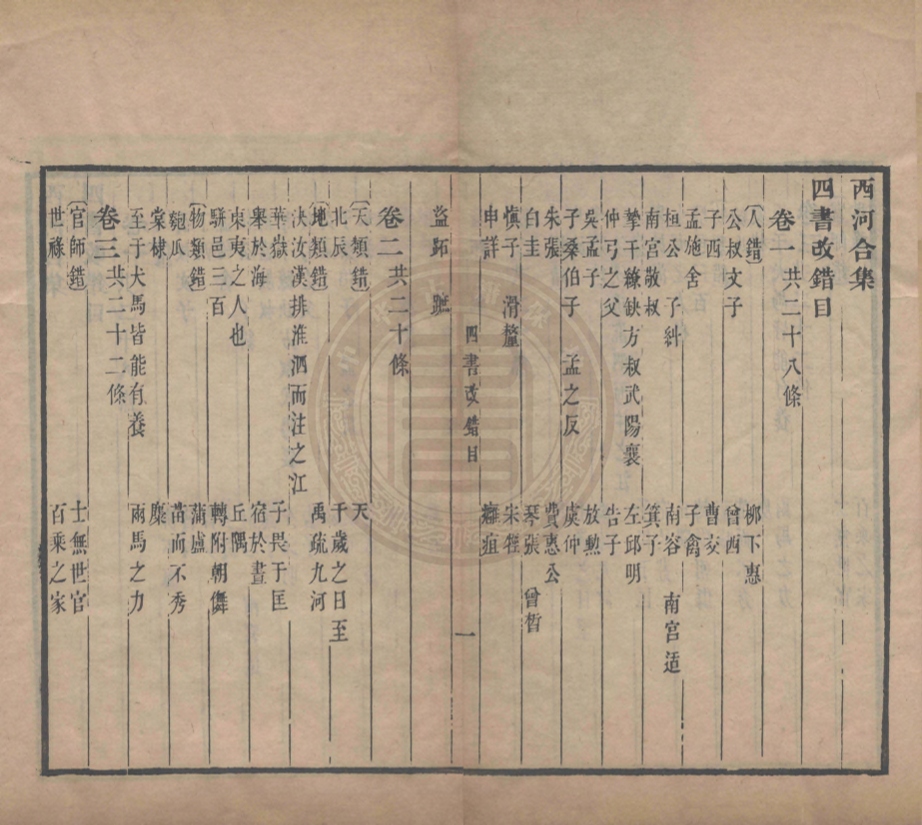 西河合集
四書改錯目
卷一 共二十八條
〔人錯〕 柳下惠
公叔文子 曾西
子西 曹交
孟施舍 子禽
桓公 子糾 南容 南宮适
南宮敬叔 箕子
摯干繚缺方叔武陽襄 左邱明
仲弓之父 告子
吳孟子 放勳
子桑伯子 孟之反 虞仲
朱張 費惠公
白圭 琴張 曾晳
愼子 滑釐 朱
申詳 癰疽
四書改錯目 一
盜跖 蹠
卷二 共二十條
〔天類錯〕 天
北辰 千歲之日至
〔地類錯〕 禹疏九河
決汝漢排淮泗而注之江
華嶽 子畏于匡
舉於海 宿於晝
東夷之人也 丘隅
駢邑三百 轉附朝儛
〔物類錯〕 蒲盧
匏瓜 苗而不秀
棠棣 麋
至于犬馬皆能有養 兩馬之力
卷三 共二十二條
〔官師錯〕 士無世官
世祿 百乘之家